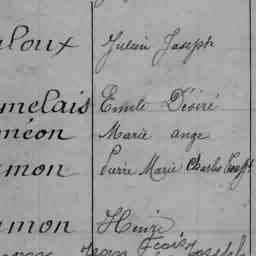 loux Julien Joseph
melais Emile Désiré
méon Marie ange
mon Pierre Marie Charles Joseph
mon Henri
Jean Joseph